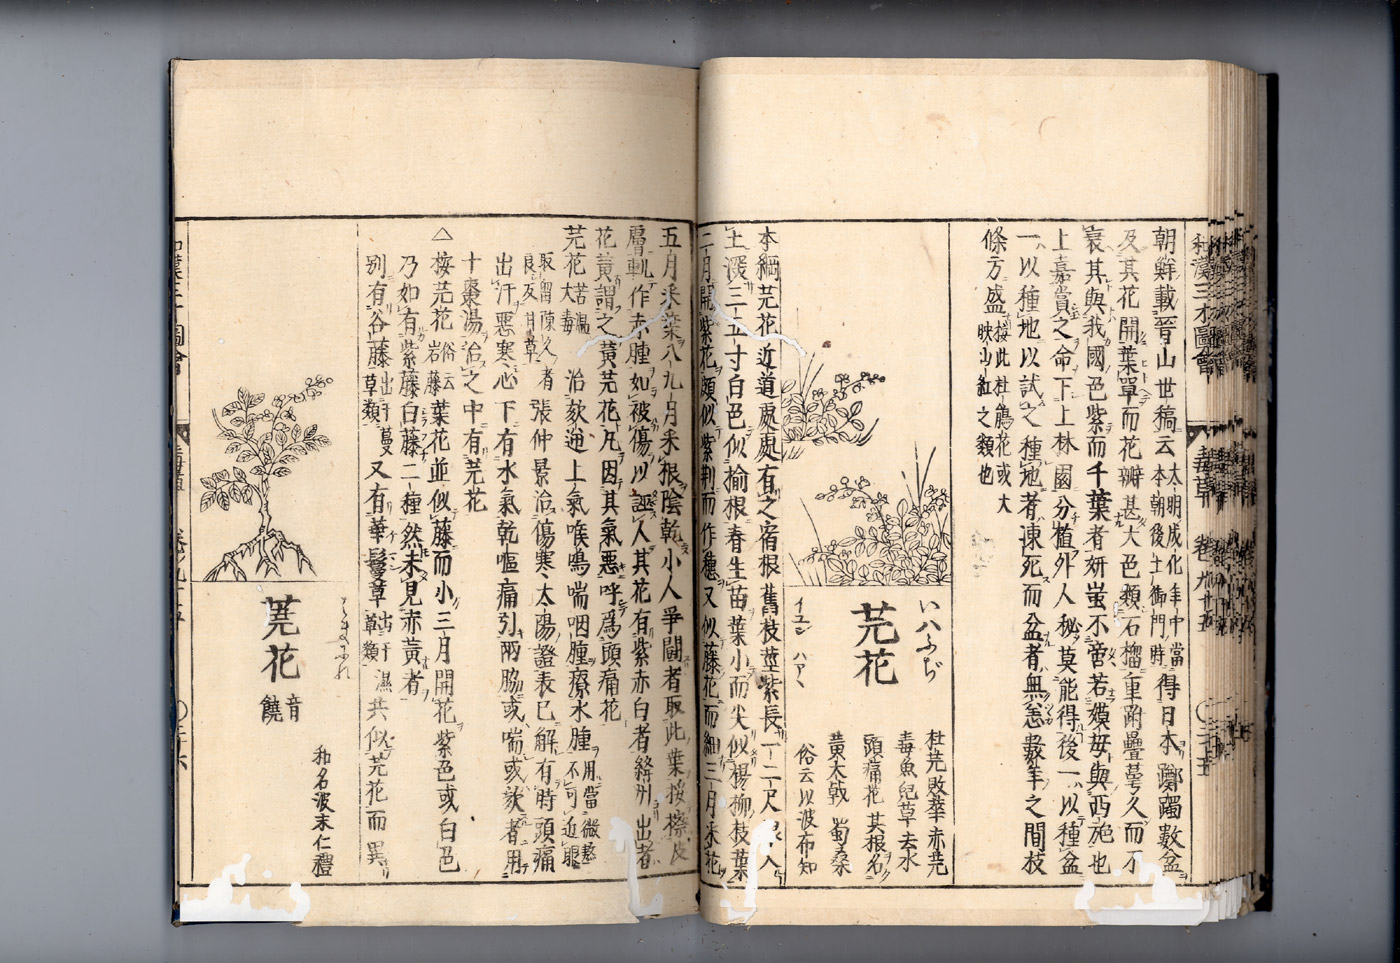 和漢三才圖會 毒草 卷九十五
朝鮮載晉山世稿云太明成化年中當本朝後土御門時得日本躑躅數盆
及其花開葉單而花瓣甚大色類石榴重跗疊萼久而不
衰其與我國色紫而千葉者妍蚩不啻若嫫母與西施也
上嘉賞之命下上林園分植外人秘莫能得後一以種盆
一以種地以試之種地者凍死而盆者無恙數年之間枝
條方盛按此杜鵑花或大映山紅之類也
芫花
いはふぢ
イユン ハアヽ
杜芫 敗華 赤芫
毒魚 兒草 去水
頭痛花 其根名
黃大戟 蜀桑
俗云以波布知
本綱芫花近道處處有之宿根舊枝莖紫長一二尺根入
土深三五寸白色似榆根春生苗葉小而尖似楊柳枝葉
二月開紫花頗似紫荆而作穗又似藤花而細三月采花
五月采葉八九月采根陰乾小人爭鬪者取此葉挼擦皮
膚輒作赤腫如被傷以誣人其花有紫赤白者絳州出者
花黃謂之黃芫花凡因其氣惡呼爲頭痛花
芫花苦溫大毒治欬逆上氣喉鳴喘咽腫療水腫用當微熬不可近眼
取留陳久者良反甘草張仲景治傷寒太陽證表已解有時頭痛
出汗惡寒心下有水氣乾嘔痛引兩脇或喘或欬者用
十棗湯治之中有芫花
△按芫花俗云岩藤葉花並似藤而小三月開花紫色或白色
乃如有紫藤白藤二種然未見赤黃者
別有谷藤出于蔓草類又有華鬘草出于濕草類共似芫花而異
蕘花 音饒
はまにれ
和名波末仁禮